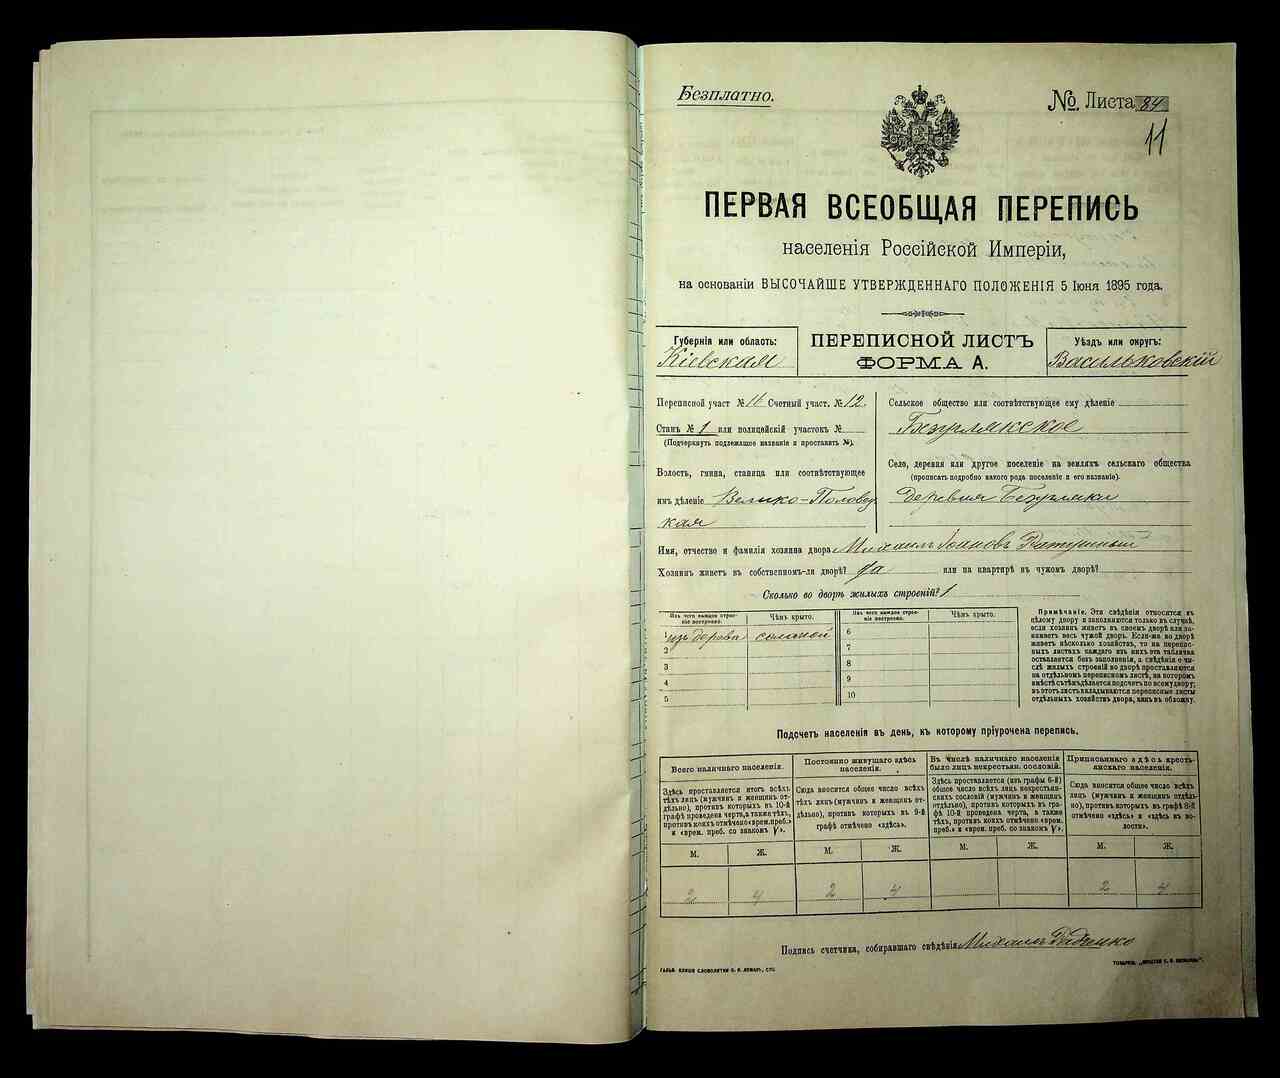 Безплатно.
№ Листа 84
11
ПЕРВАЯ ВСЕОБЩАЯ ПЕРЕПИСЬ
населенія Россійской Имперіи,
на основаніи ВЫСОЧАЙШЕ УТВЕРЖДЕННАГО ПОЛОЖЕНІЯ 5 Іюня 1895 года.
Губернія или область:
Кіевская
ПЕРЕПИСНОЙ ЛИСТЪ
ФОРМА А.
Уѣздъ или округъ:
Васильковскій
Переписной участ № Счетный участ. № 12.
Станъ № 1 или полицейскій участокъ №
(Подчеркнуть подлежащее названіе и проставить №).
Волость, гмина, станица или соотвѣтствующее
имъ дѣленіе Велико-Половец
кая
Сельское общество или соотвѣтствующее ему дѣленіе
Безуглякское
Село, деревня или другое поселеніе на земляхъ сельскаго общества
(прописать подробно какого рода поселеніе и его названіе).
деревня Безугляки
Имя, отчество и фамилія хозяина двора Михаилъ
Хозяинъ живетъ въ собственномъ-ли дворѣ? да или на квартирѣ въ чужомъ дворѣ?
Сколько во дворѣ жилыхъ строеній? 1
Изъ чего каждое строеніе построено.
Чѣмъ крыто.
изъ дерева соломой
2
3
4
5
Изъ чего каждое строеніе построено.
Чѣмъ крыто.
6
7
8
9
10
Примѣчаніе. Эти свѣдѣнія относятся къ
цѣлому двору и заполняются только въ случаѣ,
если хозяинъ живетъ въ своемъ дворѣ или занимаетъ весь чужой дворъ. Если-же во дворѣ
живетъ нѣсколько хозяйствъ, то на переписныхъ листахъ каждаго изъ нихъ эта табличка
оставляется безъ заполненія, а свѣдѣнія о числѣ жилыхъ строеній во дворѣ проставляются
на отдѣльномъ переписномъ листѣ, на которомъ
вмѣстѣ съ тѣмъ дѣлается подсчетъ по всему двору;
въ этотъ листъ вкладываются переписные листы
отдѣльныхъ хозяйствъ двора, какъ въ обложку.
Подсчетъ населенія въ день, къ которому пріурочена перепись.
Всего наличнаго населенія.
Здѣсь проставляется итогъ всѣхъ
тѣхъ лицъ (мужчинъ и женщинъ отдѣльно), противъ которыхъ въ 10-й
графѣ проведена черта, а также тѣхъ,
противъ коихъ отмѣчено «врем. преб.»
и «врем. преб. со знакомъ V».
М. Ж.
2 4
Постоянно живущаго здѣсь
населенія.
Сюда вносится общее число всѣхъ
тѣхъ лицъ (мужчинъ и женщинъ отдѣльно), противъ которыхъ въ 9-й
графѣ отмѣчено «здѣсь».
М. Ж.
2 4
Въ числѣ наличнаго населенія
было лицъ некрестьян. сословій.
Здѣсь проставляется (изъ графы 6-й)
общее число всѣхъ лицъ некрестьянскихъ сословій (мужчинъ и женщинъ
отдѣльно), противъ которыхъ въ графѣ 10-й проведена черта, а также
тѣхъ, противъ коихъ отмѣчено «врем.
преб.» и «врем. преб. со знакомъ V».
М. Ж.
Приписаннаго здѣсь крестьянскаго населенія.
Сюда вносится общее число всѣхъ
лицъ (мужчинъ и женщинъ отдѣльно), противъ которыхъ въ графѣ 8-й
отмѣчено «здѣсь» и «здѣсь въ волости».
М. Ж.
2 4
Подпись счетчика, собиравшаго свѣдѣнія Михаилъ